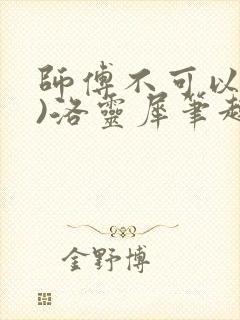 師傅不可以
)洛靈犀筆趣
金野博